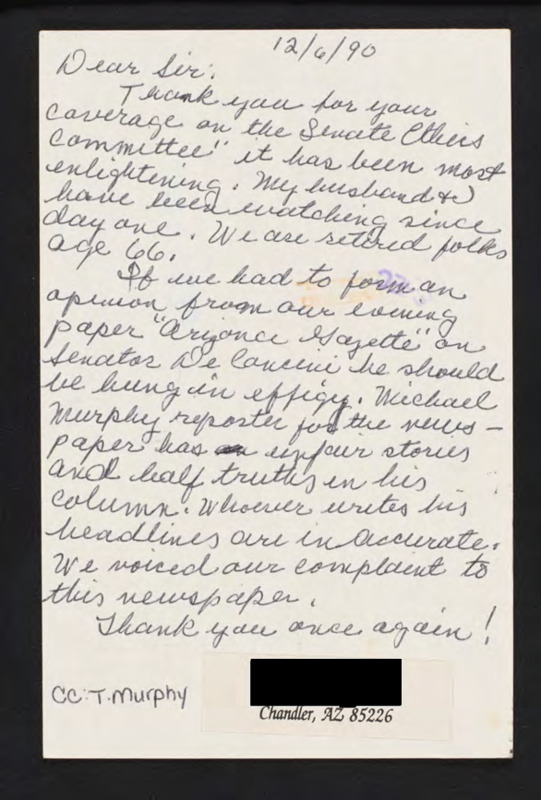 12/6/90
Dear Sir:
Thank you for your
coverage on the Senate Ethics
committee" it has been most
enlightening. My husband & I
have been watching since
day one. We are retired folks
age 66.
If we had to form an
opinion from our evening
paper "Arizona Gazette" on
Senator De Concini he should
be hung in effigy. Michael
Murphy reporter for the news-
paper has unfair stories
and half truths in his
column. Whoever writes his
headlines are in accurate.
We voiced our complaint to
this newspaper.
Thank you once again!
CC: T. Murphy
Chandler, AZ 85226